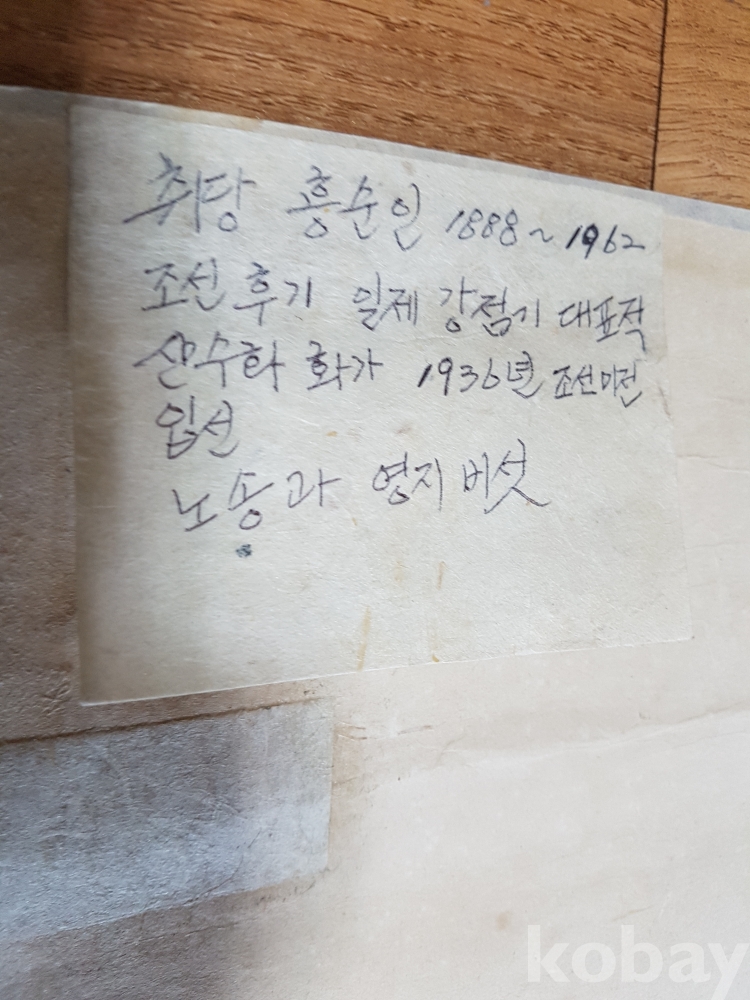 취당 홍순일 1888~1962
조선 후기 일제 강점기 대표적
산수화 화가 1936년 조선미전
입선
노송과 영지버섯
kobay